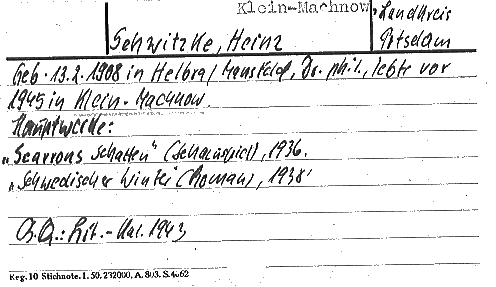 Klein-Machnow, Landkreis
Schwitzke, Heinz Potsdam
Geb. 13.2.1908 in Helbra/Mansfeld, Dr. phil., lebte vor
1945 in Klein-Machnow.
Hauptwerke:
„Scarrons Schatten" (Schauspiel), 1936.
„Schwedischer Winter" (Roman), 1938.
Q.Q.: Lit.-Kal. 1943
Reg. 10 Stichnote. I. 50. 232000, A. 803. S. 4062